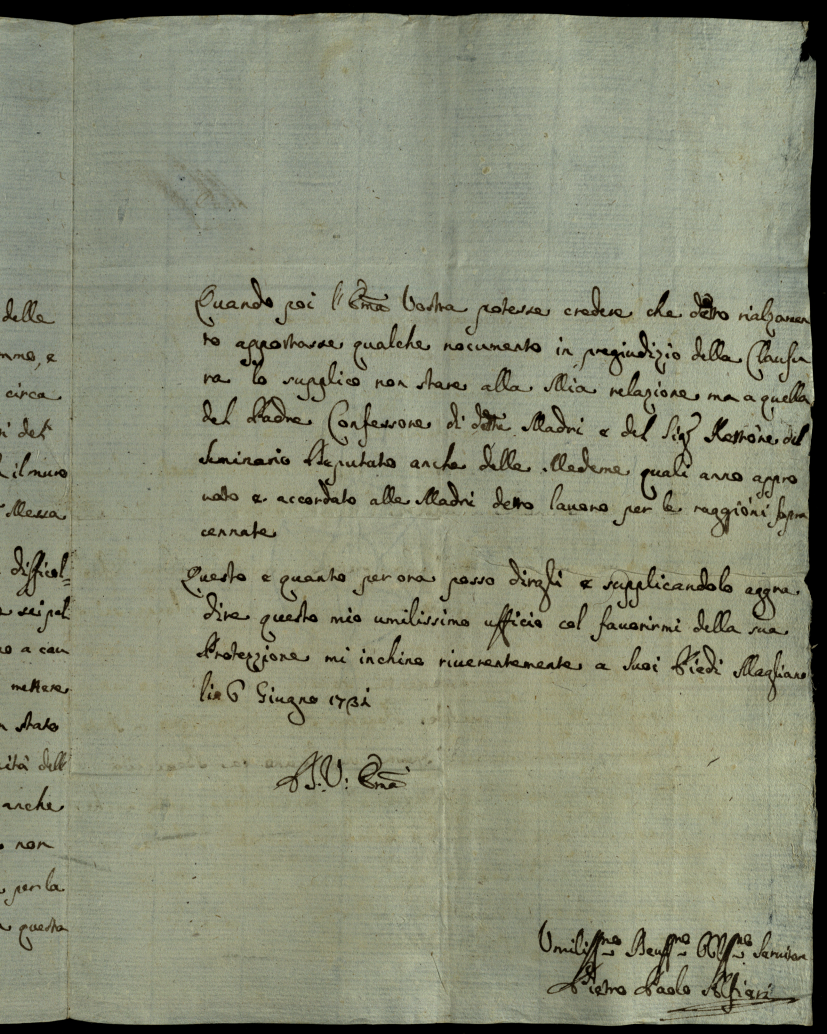 delle
mmo, e
circa
ri det
il muro
Messa
difficol=
sei pal
no a cau
mettere
n stato
ità dell
anche
non
per la
questa
Quando poi l'Em̃a Vostra potesse credere che detto rialzamen
to apportasse qualche nocumento in pregiudizio della Clausu
ra lo supplico non stare alla Mia relazione ma a quella
del Padre Confessore di dette Madri e del Sigr Rettore del
Seminario Deputato anche delle Medeme quali anno appro
vato e accordato alle Madri detto lavoro per le raggioni sopra
cennate
Questo e quanto per ora posso dirgli e supplicandolo aggra
dire questo mio umilissimo ufficio col favorirmi della sua
Protezzione mi inchino riverentemente a Suoi Piedi Magliano
li 6 Giugno 1731
D. V: Em̃a
Umilissmo Devssmo Obssmo Servitore
Pietro Paolo Alfieri